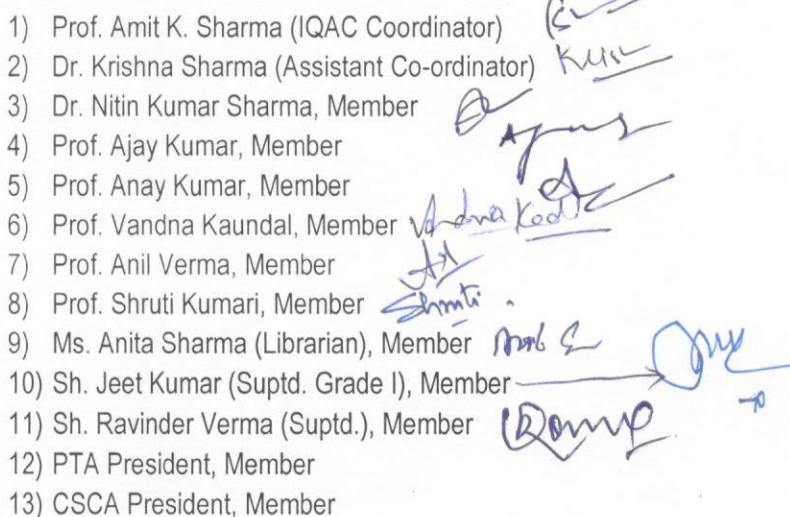 1) Prof. Amit K. Sharma (IQAC Coordinator)
2) Dr. Krishna Sharma (Assistant Co-ordinator)
3) Dr. Nitin Kumar Sharma, Member
4) Prof. Ajay Kumar, Member
5) Prof. Anay Kumar, Member
6) Prof. Vandna Kaundal, Member Vandna
7) Prof. Anil Verma, Member
8) Prof. Shruti Kumari, Member Shruti
9) Ms. Anita Sharma (Librarian), Member
10) Sh. Jeet Kumar (Suptd. Grade I), Member
11) Sh. Ravinder Verma (Suptd.), Member
12) PTA President, Member
13) CSCA President, Member